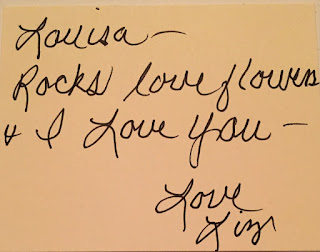 Louisa —
Rocks love flowers
& I Love You —
Love
Liz